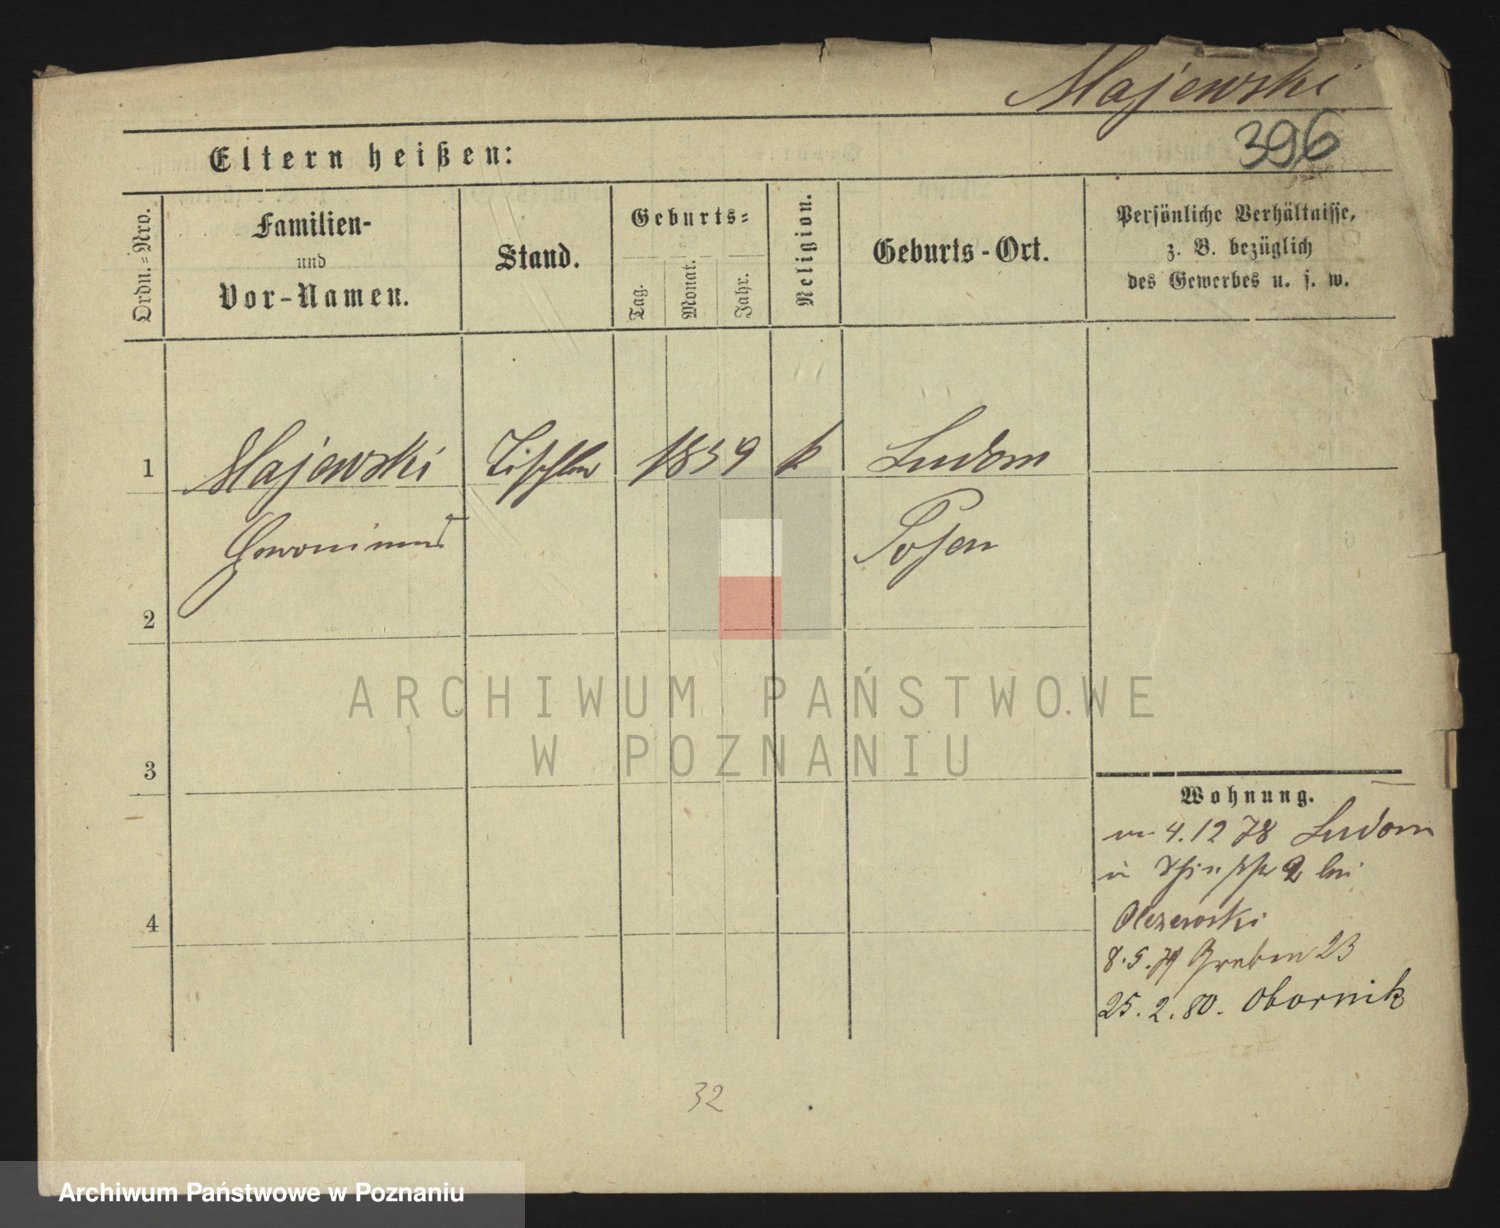 Majewski
396
Eltern heißen:
Ordn.=Nro.
Familien-
und
Vor-Namen.
Stand.
Geburts=
Tag.
Monat.
Jahr.
Religion.
Geburts-Ort.
Persönliche Verhältnisse,
z. B. bezüglich
des Gewerbes u. s. w.
1 Majewski Tischler 1839 k Ludom
Posen
2
3
4
Wohnung.
4.12 78 Ludom
2 bei
Olszewski
8.5.79 Graben 23
25.2.80. Obornik
32
ARCHIWUM PAŃSTWOWE
W POZNANIU
Archiwum Państwowe w Poznaniu